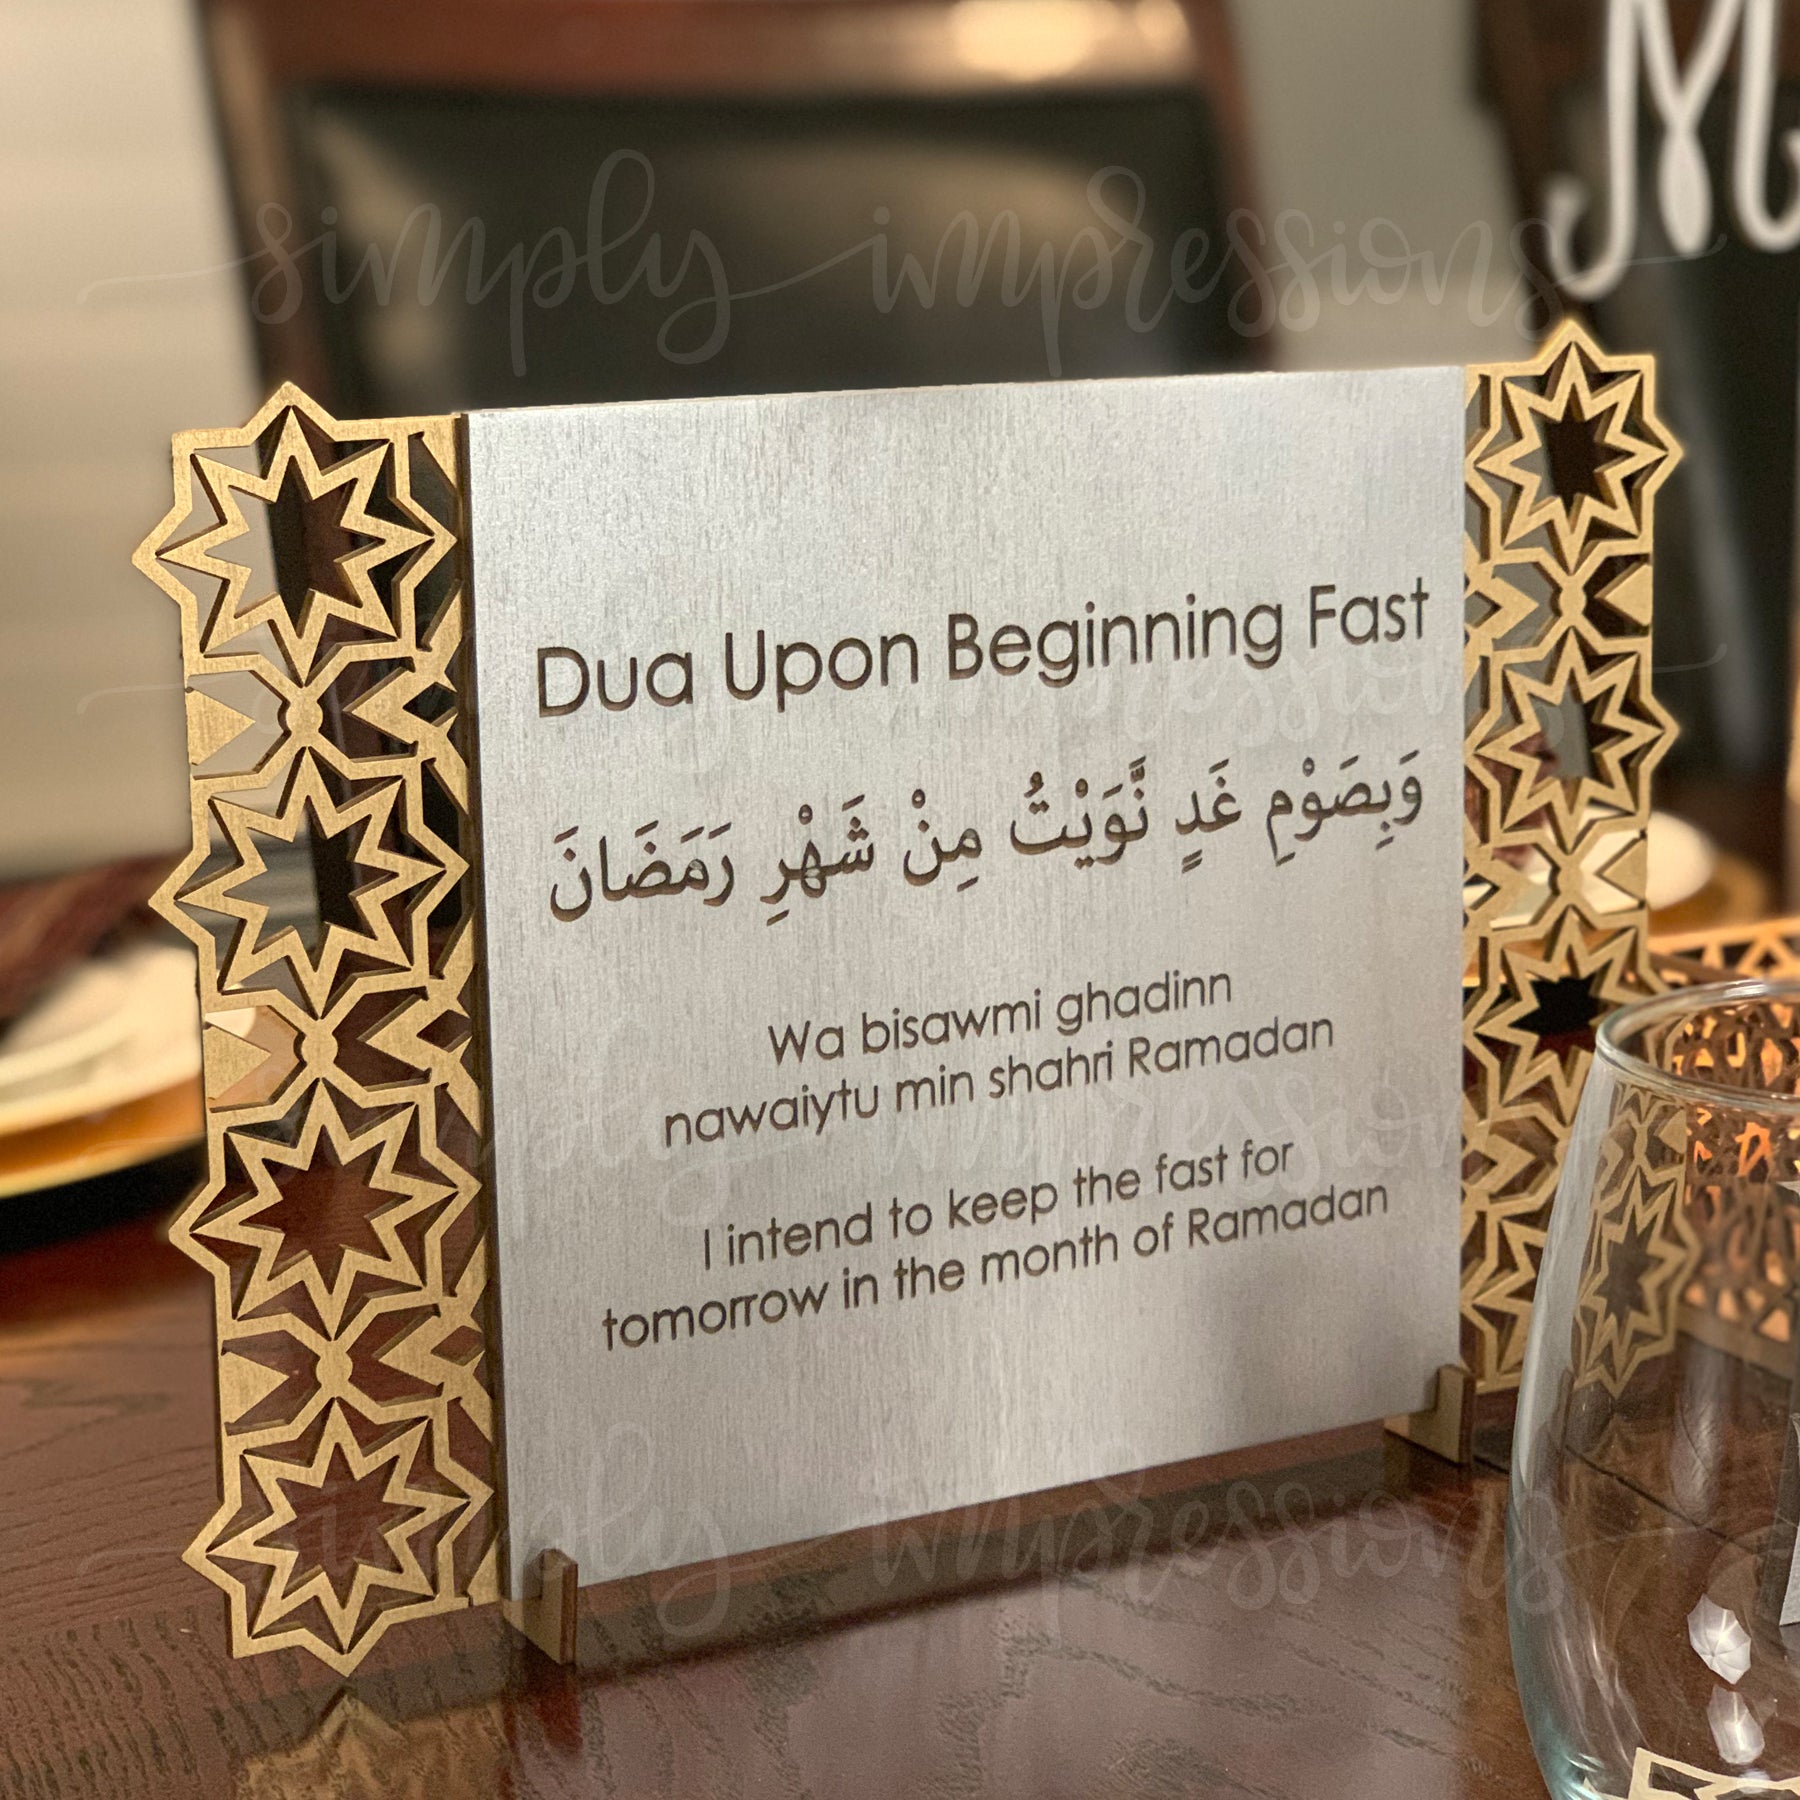 simply impressions
M
Dua Upon Beginning Fast
وَبِصَوْمِ غَدٍ نَّوَيْتُ مِنْ شَهْرِ رَمَضَانَ
Wa bisawmi ghadinn
nawaiytu min shahri Ramadan
I intend to keep the fast for
tomorrow in the month of Ramadan
simply impressions